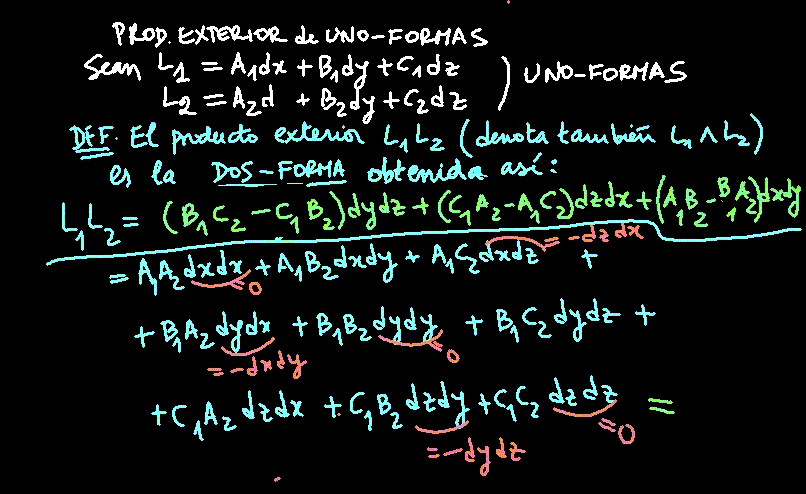 PROD. EXTERIOR de UNO-FORMAS
Sean L₁ = A₁dx + B₁dy + C₁dz ) UNO-FORMAS
L₂ = A₂d + B₂dy + C₂dz
DEF. El producto exterior L₁L₂ (denota también L₁ ∧ L₂)
es la DOS-FORMA obtenida así:
L₁L₂ = (B₁C₂ - C₁B₂)dydz + (C₁A₂ - A₁C₂)dzdx + (A₁B₂ - B₁A₂)dxdy
= A₁A₂dxdx + A₁B₂dxdy + A₁C₂dxdz +
=0 = -dzdx
+ B₁A₂dydx + B₁B₂dydy + B₁C₂dydz +
= -dxdy =0
+ C₁A₂dzdx + C₁B₂dzdy + C₁C₂dzdz =
= -dydz =0